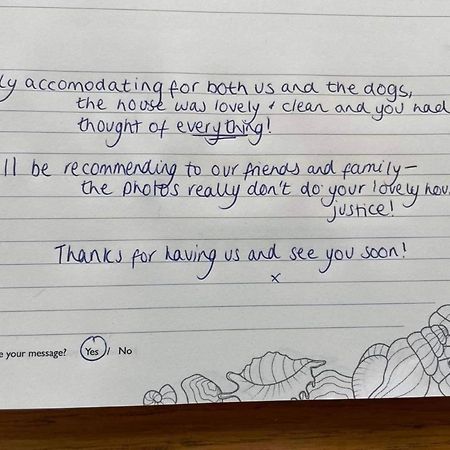 ly accomodating for both us and the dogs,
the house was lovely + clean and you had
thought of everything!
ll be recommending to our friends and family -
the photos really don't do your lovely hou
justice!
Thanks for having us and see you soon!
x
e your message? Yes / No